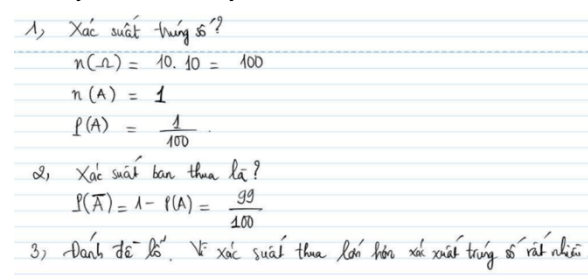 1, Xác suất trúng số?
n(Ω) = 10. 10 = 100
n(A) = 1
P(A) = 1/100.
2, Xác suất bạn thua là?
P(Ā) = 1 - P(A) = 99/100
3, Đánh đề lỗ. Vì xác suất thua lớn hơn xác xuất trúng số rất nhiều